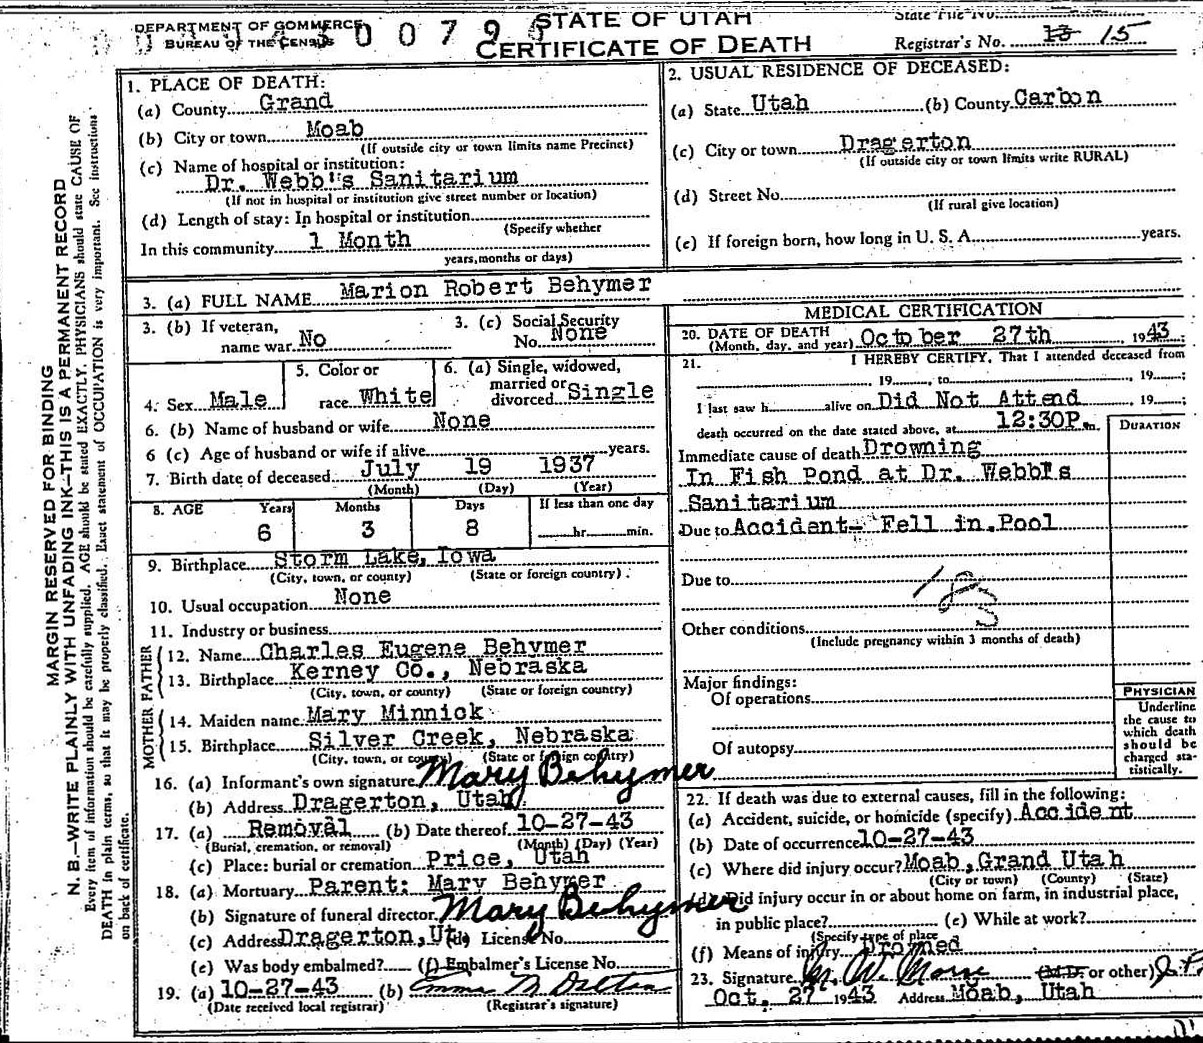 DEPARTMENT OF COMMERCE
BUREAU OF THE CENSUS
0 0 7 9
STATE OF UTAH
CERTIFICATE OF DEATH
State File No.
Registrar's No. 13 15
MARGIN RESERVED FOR BINDING
N. B.—WRITE PLAINLY WITH UNFADING INK—THIS IS A PERMANENT RECORD
Every item of information should be carefully supplied. AGE should be stated EXACTLY. PHYSICIANS should state CAUSE OF
DEATH in plain terms, so that it may be properly classified. Exact statement of OCCUPATION is very important. See instructions
on back of certificate.
1. PLACE OF DEATH:
(a) County Grand
(b) City or town Moab
(If outside city or town limits name Precinct)
(c) Name of hospital or institution:
Dr. Webb's Sanitarium
(If not in hospital or institution give street number or location)
(d) Length of stay: In hospital or institution
(Specify whether
In this community 1 Month
years, months or days)
2. USUAL RESIDENCE OF DECEASED:
(a) State Utah (b) County Carbon
(c) City or town Dragerton
(If outside city or town limits write RURAL)
(d) Street No.
(If rural give location)
(e) If foreign born, how long in U. S. A. years.
3. (a) FULL NAME Marion Robert Behymer
3. (b) If veteran, name war No
3. (c) Social Security No. None
4. Sex Male
5. Color or race White
6. (a) Single, widowed, married or divorced Single
6. (b) Name of husband or wife None
6 (c) Age of husband or wife if alive years.
7. Birth date of deceased July 19 1937
(Month) (Day) (Year)
8. AGE Years Months Days If less than one day
6 3 8 hr. min.
9. Birthplace Storm Lake, Iowa
(City, town, or county) (State or foreign country)
10. Usual occupation None
11. Industry or business
FATHER
12. Name Charles Eugene Behymer
13. Birthplace Kerney Co., Nebraska
(City, town, or county) (State or foreign country)
MOTHER
14. Maiden name Mary Minnick
15. Birthplace Silver Creek, Nebraska
(City, town, or county) (State or foreign country)
16. (a) Informant's own signature Mary Behymer
(b) Address Dragerton, Utah
17. (a) Removal (b) Date thereof 10-27-43
(Burial, cremation, or removal) (Month) (Day) (Year)
(c) Place: burial or cremation Price, Utah
18. (a) Mortuary Parent: Mary Behymer
(b) Signature of funeral director Mary Behymer
(c) Address Dragerton, Ut. (d) License No.
(e) Was body embalmed? (f) Embalmer's License No.
19. (a) 10-27-43 (b) Emma M Dalton
(Date received local registrar) (Registrar's signature)
MEDICAL CERTIFICATION
20. DATE OF DEATH October 27th 1943;
(Month, day, and year)
21. I HEREBY CERTIFY, That I attended deceased from
, 19 , to , 19 ;
I last saw h alive on Did Not Attend , 19 ;
death occurred on the date stated above, at 12:30P m.
DURATION
Immediate cause of death Drowning
In Fish Pond at Dr. Webb's
Sanitarium
Due to Accident- Fell in Pool
Due to
183
Other conditions
(Include pregnancy within 3 months of death)
Major findings:
Of operations
Of autopsy
PHYSICIAN
Underline
the cause to
which death
should be
charged sta-
tistically.
22. If death was due to external causes, fill in the following:
(a) Accident, suicide, or homicide (specify) Accident
(b) Date of occurrence 10-27-43
(c) Where did injury occur? Moab, Grand Utah
(City or town) (County) (State)
(d) Did injury occur in or about home on farm, in industrial place,
in public place? (e) While at work?
(Specify type of place
(f) Means of injury Drowned
23. Signature (M.D. or other) J.P.
Oct. 27 1943 Address Moab, Utah